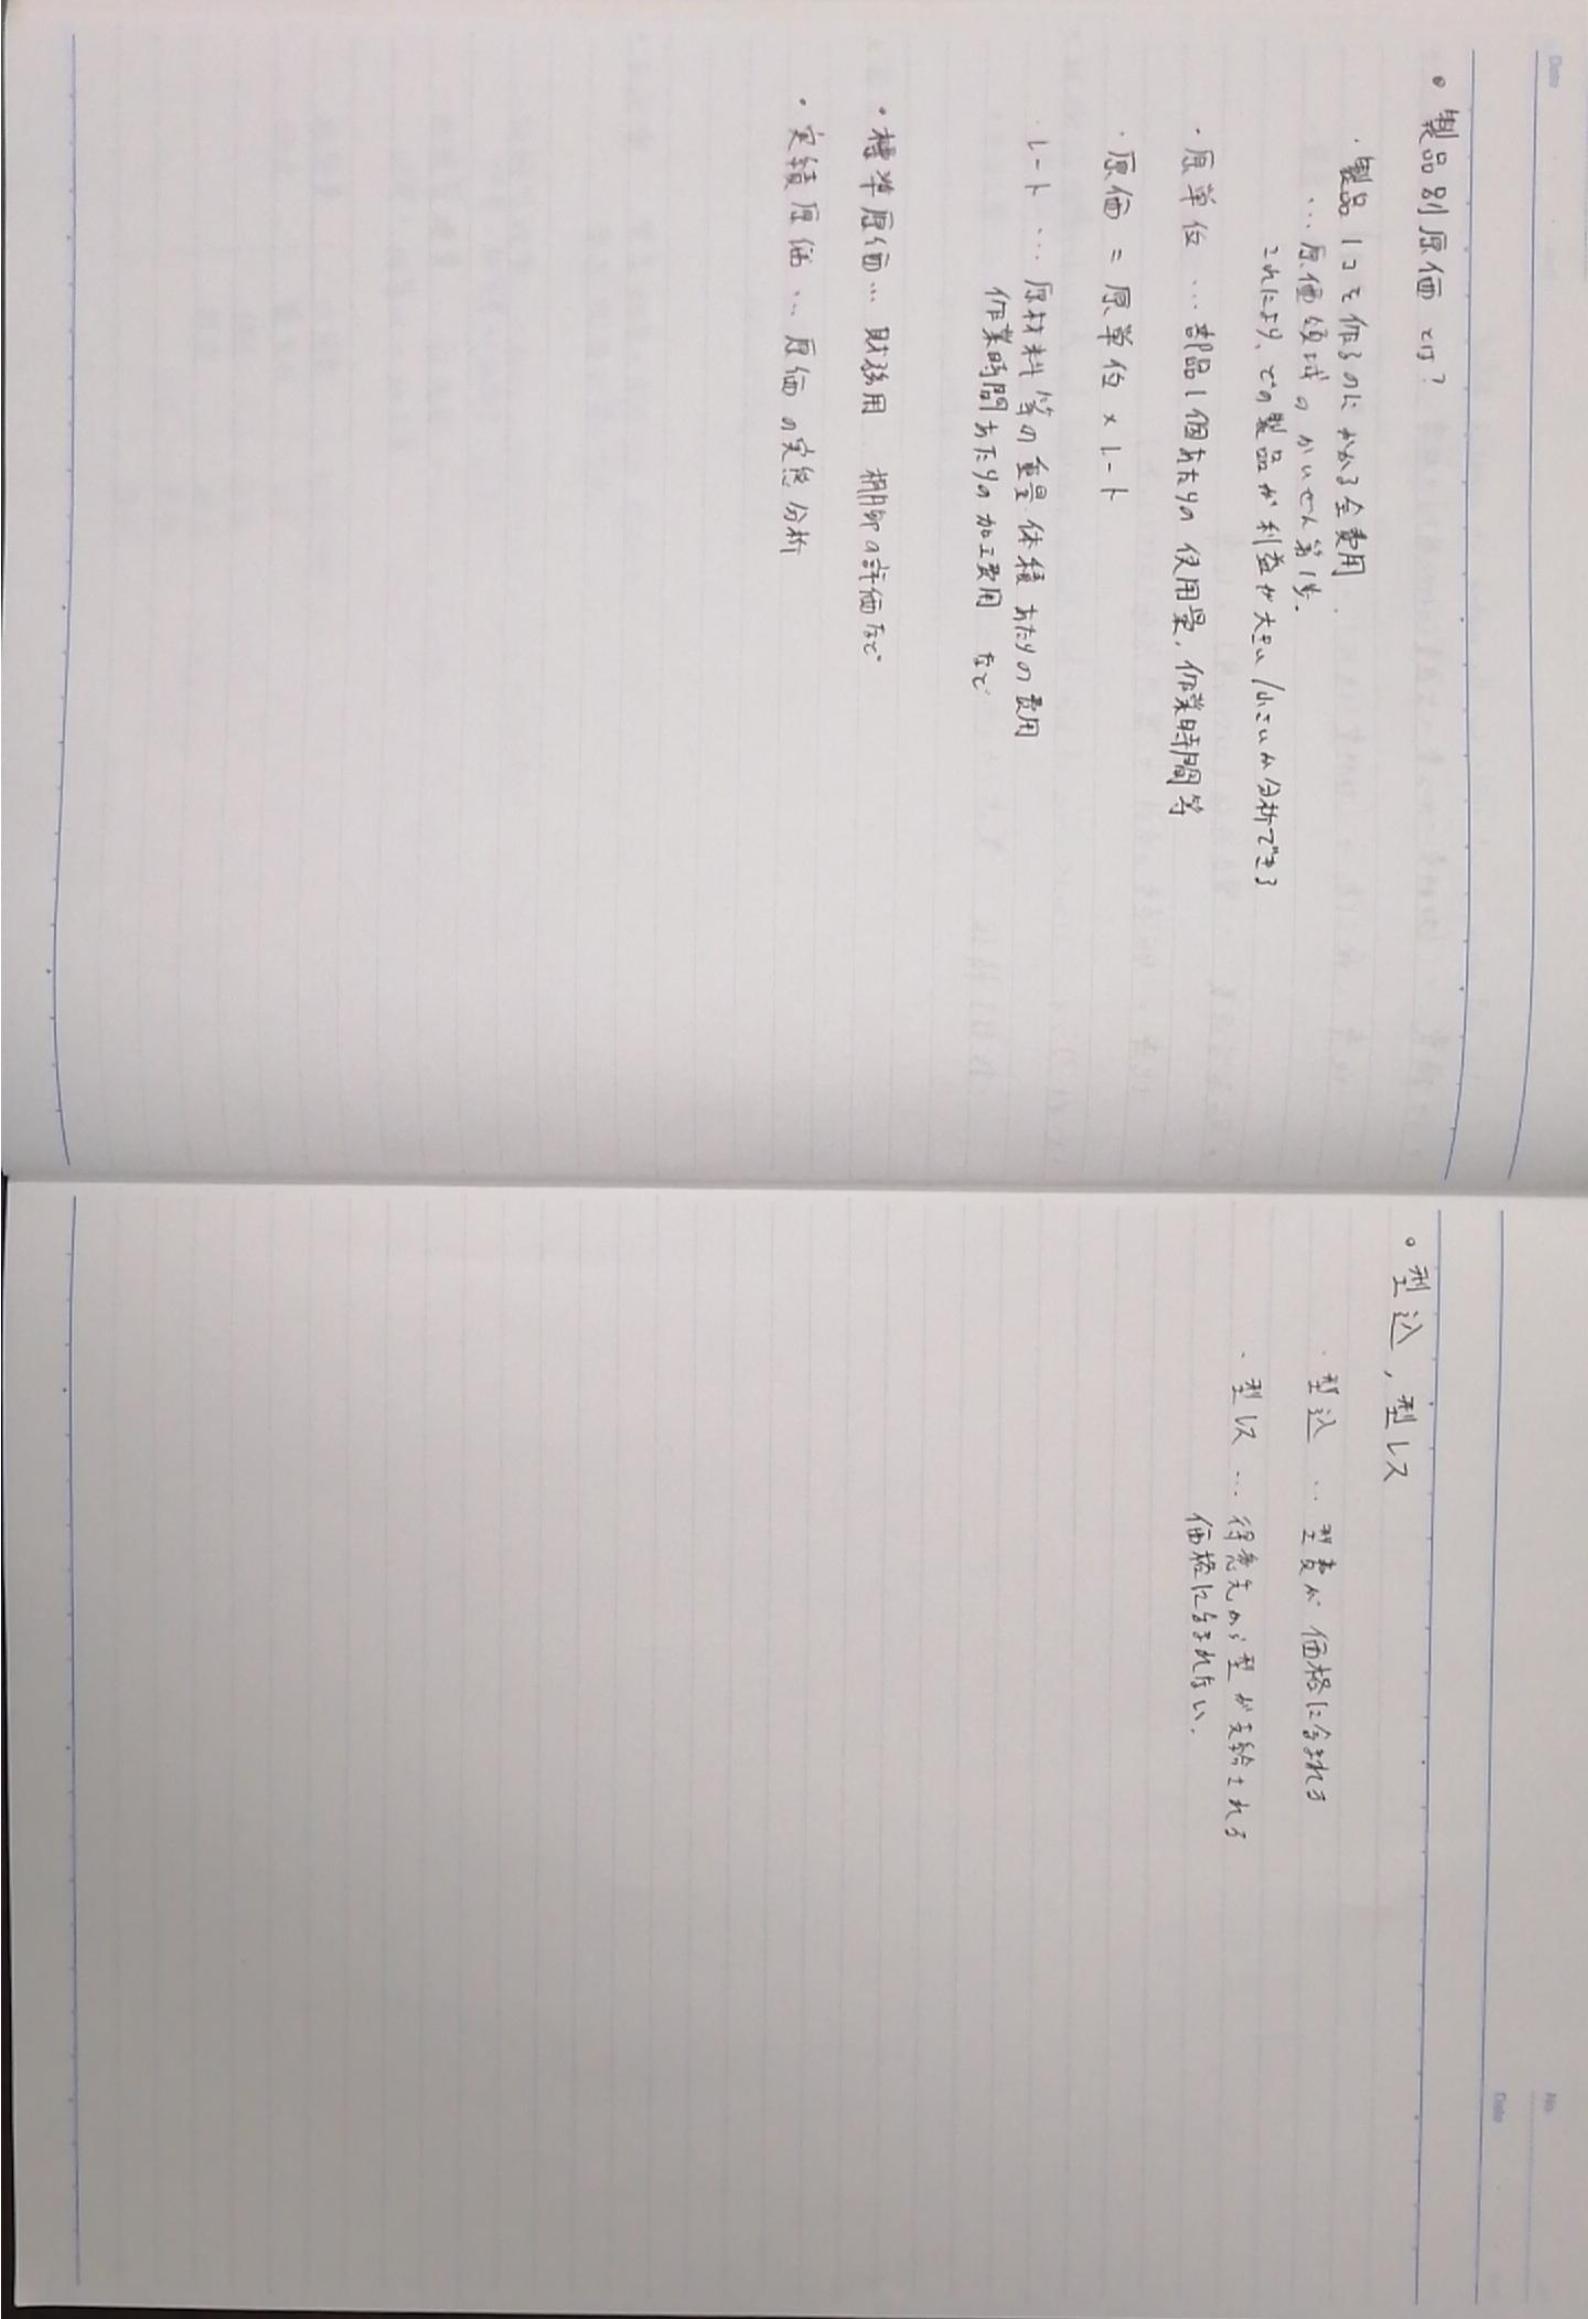 Date
◦ 製品別原価とは?
・製品1コを作るのにかかる全費用.
…原価領域のかいせん第1歩.
これにより、どの製品が利益が大きい/小さいか分析できる
・原単位 … 部品1個あたりの使用量, 作業時間等
・原価 = 原単位 × レート
・レート … 原材料等の重量 体積あたりの費用
作業時間あたりの加工費用 など
・標準原価 … 財務用 棚卸の評価など
・実績原価 … 原価の実態分析
No.
Date
◦ 型込, 型レス
・型込 … 型費が価格に含まれる
・型レス … 得意先から型が支給される
価格に含まれない.